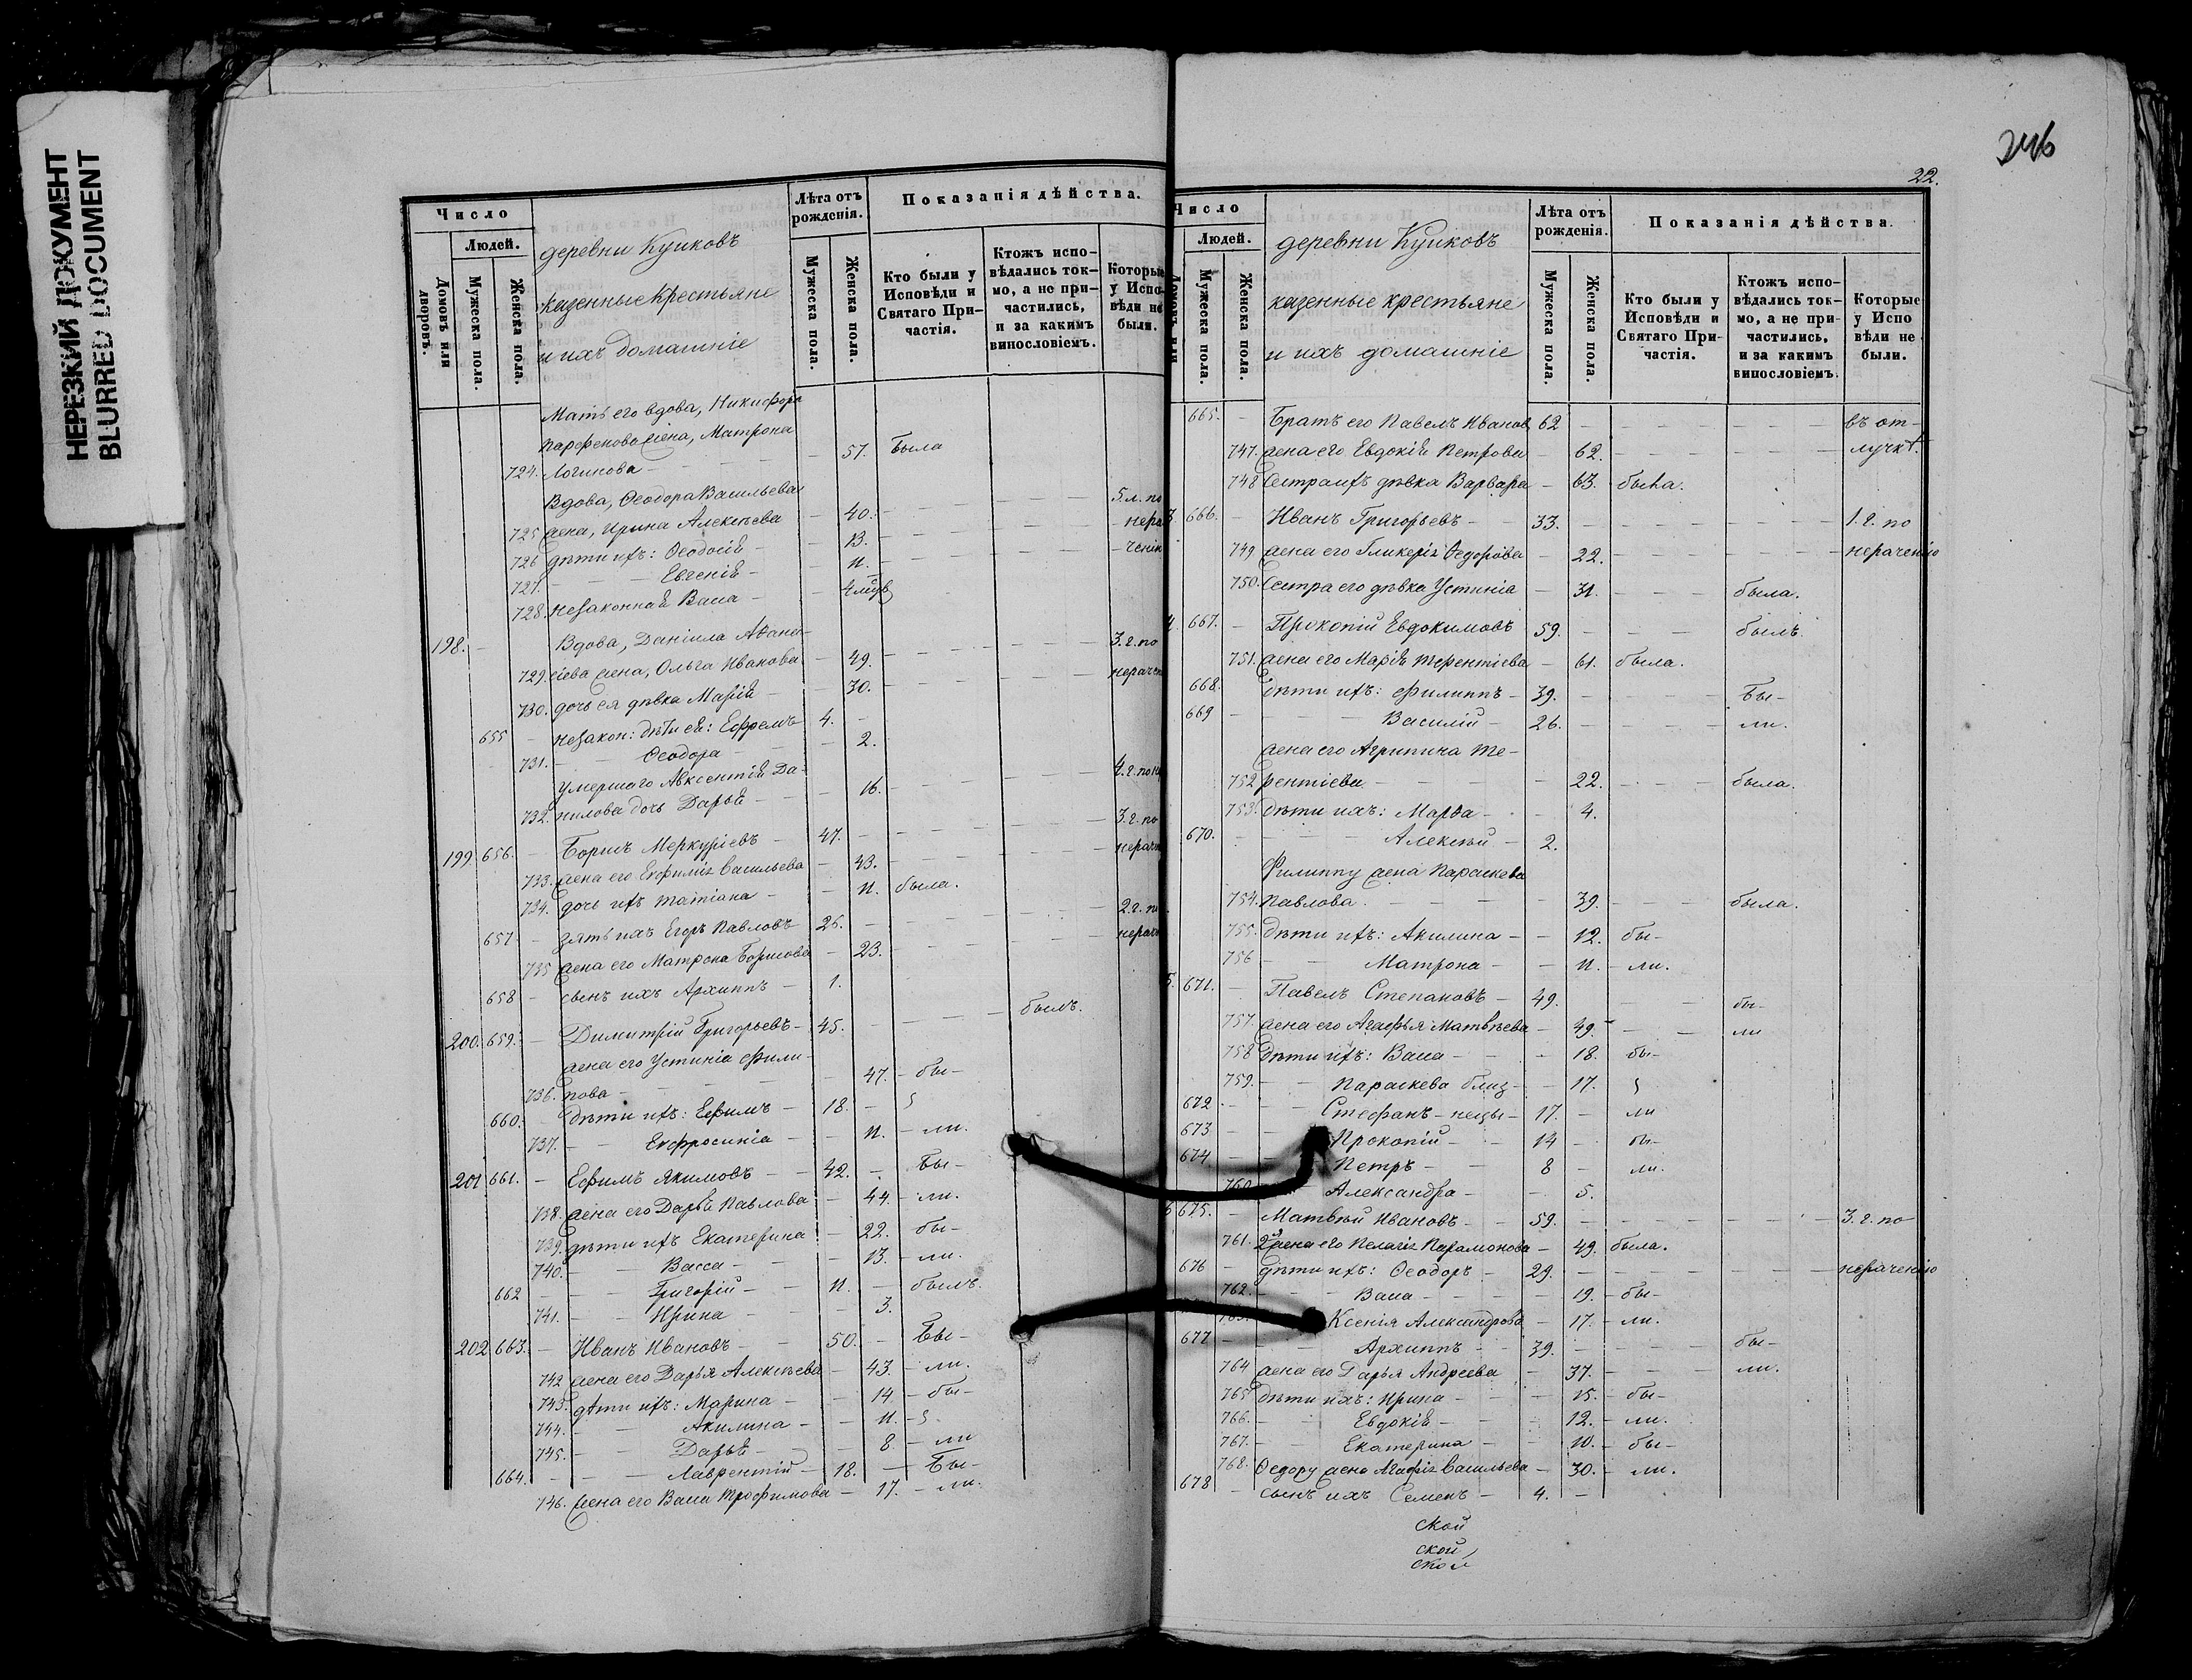 НЕРЕЗКИЙ ДОКУМЕНТ
BLURRED DOCUMENT
246
22.
Число
Людей.
Домовъ или дворовъ.
Мужеска пола.
Женска пола.
деревни Куиковъ
казенные крестьяне
и ихъ домашніе
Лѣта отъ рожденія.
Мужеска пола
Женска пола.
Показанія дѣйства.
Кто были у Исповѣди и Святаго Причастія.
Ктожъ исповѣдались токмо, а не причастились, и за какимъ винословіемъ.
Которые у Исповѣди не были.
Мать его вдова, Никифора
Парфенова жена, Матрона
724. Логинова — 57. была
Вдова, Ѳеодора Васильева
725 жена, Ирина Алексѣева — 40. — 5.л. по
726 дѣти ихъ: Ѳеодосія — 13. — нера
727. Евгенія — 11. — ченію
728. незаконная Васса — 4 мсцв
198. — Вдова, Даніила Аѳана-
729. сіева жена, Ольга Иванова — 49. — 3.г. по
730. дочь ея дѣвка Марія — 30. — нерачен
655 — незакон: дѣти ея: Ефремъ — 4. —
731. — Ѳеодора — 2.
умершаго Авксентія Да-
732. нилова дочь Дарья — 16. — 4.г. по не
199 656. — Борисъ Меркуріевъ — 47. — 3.г. по
733. жена его Евфимія Васильева — 43. — нерачен
734. дочь ихъ Татіана — 11. была.
657 — зять ихъ Егоръ Павловъ — 25. — 2.г. по
735 жена его Матрона Борисова — 23. — нерач
658 — сынъ ихъ Архиппъ — 1.
200. 659. — Димитрій Григорьевъ — 45. — былъ.
жена его Устинія Фили-
736. пова — 47. — бы-
660. — дѣти ихъ: Ефимъ — 18. —
737. — Евфросинія — 11. — ли.
201 661. — Ефимъ Якимовъ — 42. — Бы-
738. жена его Дарья Павлова — 44. — ли.
739. дѣти ихъ Екатерина — 22. бы-
740. — Васса — 13. — ли.
662 — Григорій — 11. — былъ.
741. — Ирина — 3.
202 663. — Иванъ Ивановъ — 50. — Бы-
742 жена его Дарья Алексѣева — 43. — ли.
743. дѣти ихъ: Марина — 14 — бы-
744. — Акилина — 11. —
745. — Дарья — 8 — ли
664. — Лаврентій — 18. — Бы-
746. жена его Васса Трофимова — 17. — ли.
Число
Людей.
Мужеска пола.
Женска пола.
деревни Куиковъ
казенные крестьяне
и ихъ домашніе
Лѣта отъ рожденія.
Мужеска пола.
Женска пола.
Показанія дѣйства.
Кто были у Исповѣди и Святаго Причастія.
Ктожъ исповѣдались токмо, а не причастились, и за какимъ винословіемъ.
Которые у Исповѣди не были.
665. — Братъ его Павелъ Иванов 62 — въ от-
747. жена его Евдокія Петрова — 62. — лучкѣ.
748 Сестра ихъ дѣвка Варвара — 63. была.
3. 666. — Иванъ Григорьевъ — 33. — 1.г. по
749 жена его Гликерія Ѳедорова — 22. — нераченію
750. Сестра его дѣвка Устинія — 31. — была.
4. 667. — Прокопій Евдокимовъ 59. — былъ
751. жена его Марія Терентіева — 61. была.
668. дѣти ихъ: Филиппъ — 39. — Бы-
669 — Василій — 26. — ли.
жена его Агрипина Те-
752 рентіева — 22. — была.
753. дѣти ихъ: Марѳа — 4.
670. — Алексѣй — 2.
Филиппу жена Параскева
754. Павлова — 39. — была.
755. дѣти ихъ: Акилина — 12. бы-
756 — Матрона — 11. — ли.
5. 671. — Павелъ Степановъ — 49. — бы-
757 жена его Агафья Матвѣева — 49. — ли
758 дѣти ихъ: Васса — 18. бы-
759. — Параскева близ- — 17.
672 — Стефанъ — нецы — 17. — ли
673 — Прокопій — 14 — бы-
674 — Петръ — 8 — ли.
760 — Александра — 5.
6 675. — Матвѣй Ивановъ — 59. — 3.г. по
761. 2я жена его Пелагія Парамонова — 49. была.
676 — дѣти ихъ: Ѳеодоръ — 29. — нераченію
762. — Васса — 19. — бы-
763. Ксенія Александрова — 17. — ли.
677 — Архиппъ — 39. — бы-
764 жена его Дарья Андреева — 37. — ли.
765 дѣти ихъ: Ирина — 15. — бы-
766. — Евдокія — 12. — ли.
767. — Екатерина — 10. — бы-
768. Ѳедору жена Агафія Васильева — 30. — ли.
678 — сынъ ихъ Семенъ — 4. —
ской
ской
ской